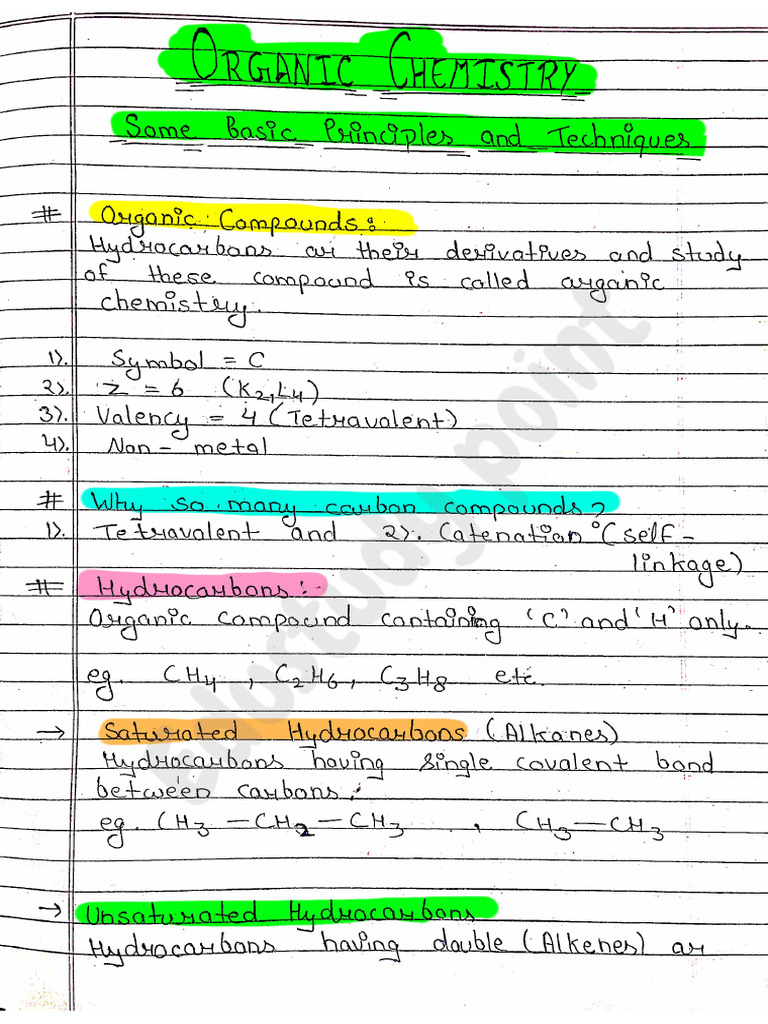 ORGANIC CHEMISTRY
Some Basic Principles and Techniques
# Organic Compounds:
Hydrocarbons or their derivatives and study
of these compound is called organic
chemistry.
1). Symbol = C
2). Z = 6 (K2, L4)
3). Valency = 4 (Tetravalent)
4). Non-metal
# Why so many carbon compounds?
1). Tetravalent and 2). Catenation (self-
linkage)
# Hydrocarbons:-
Organic compound containing 'C' and 'H' only.
eg. CH4, C2H6, C3H8 etc.
→ Saturated Hydrocarbons (Alkanes)
Hydrocarbons having single covalent bond
between carbons.
eg. CH3-CH2-CH3, CH3-CH3
→ Unsaturated Hydrocarbons
Hydrocarbons having double (Alkenes) or
edustudy point